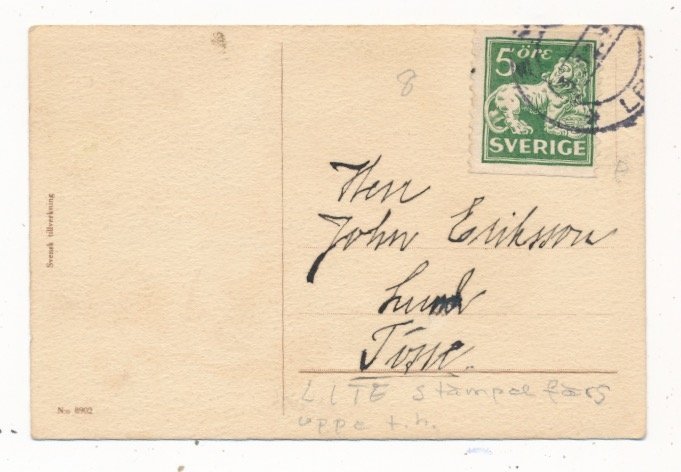 8
5 öre
SVERIGE
Herr
John Eriksson
Lund
Tösse.
LITE stämpel färg
uppe t.h.
Svensk tillverkning
N:o 8902